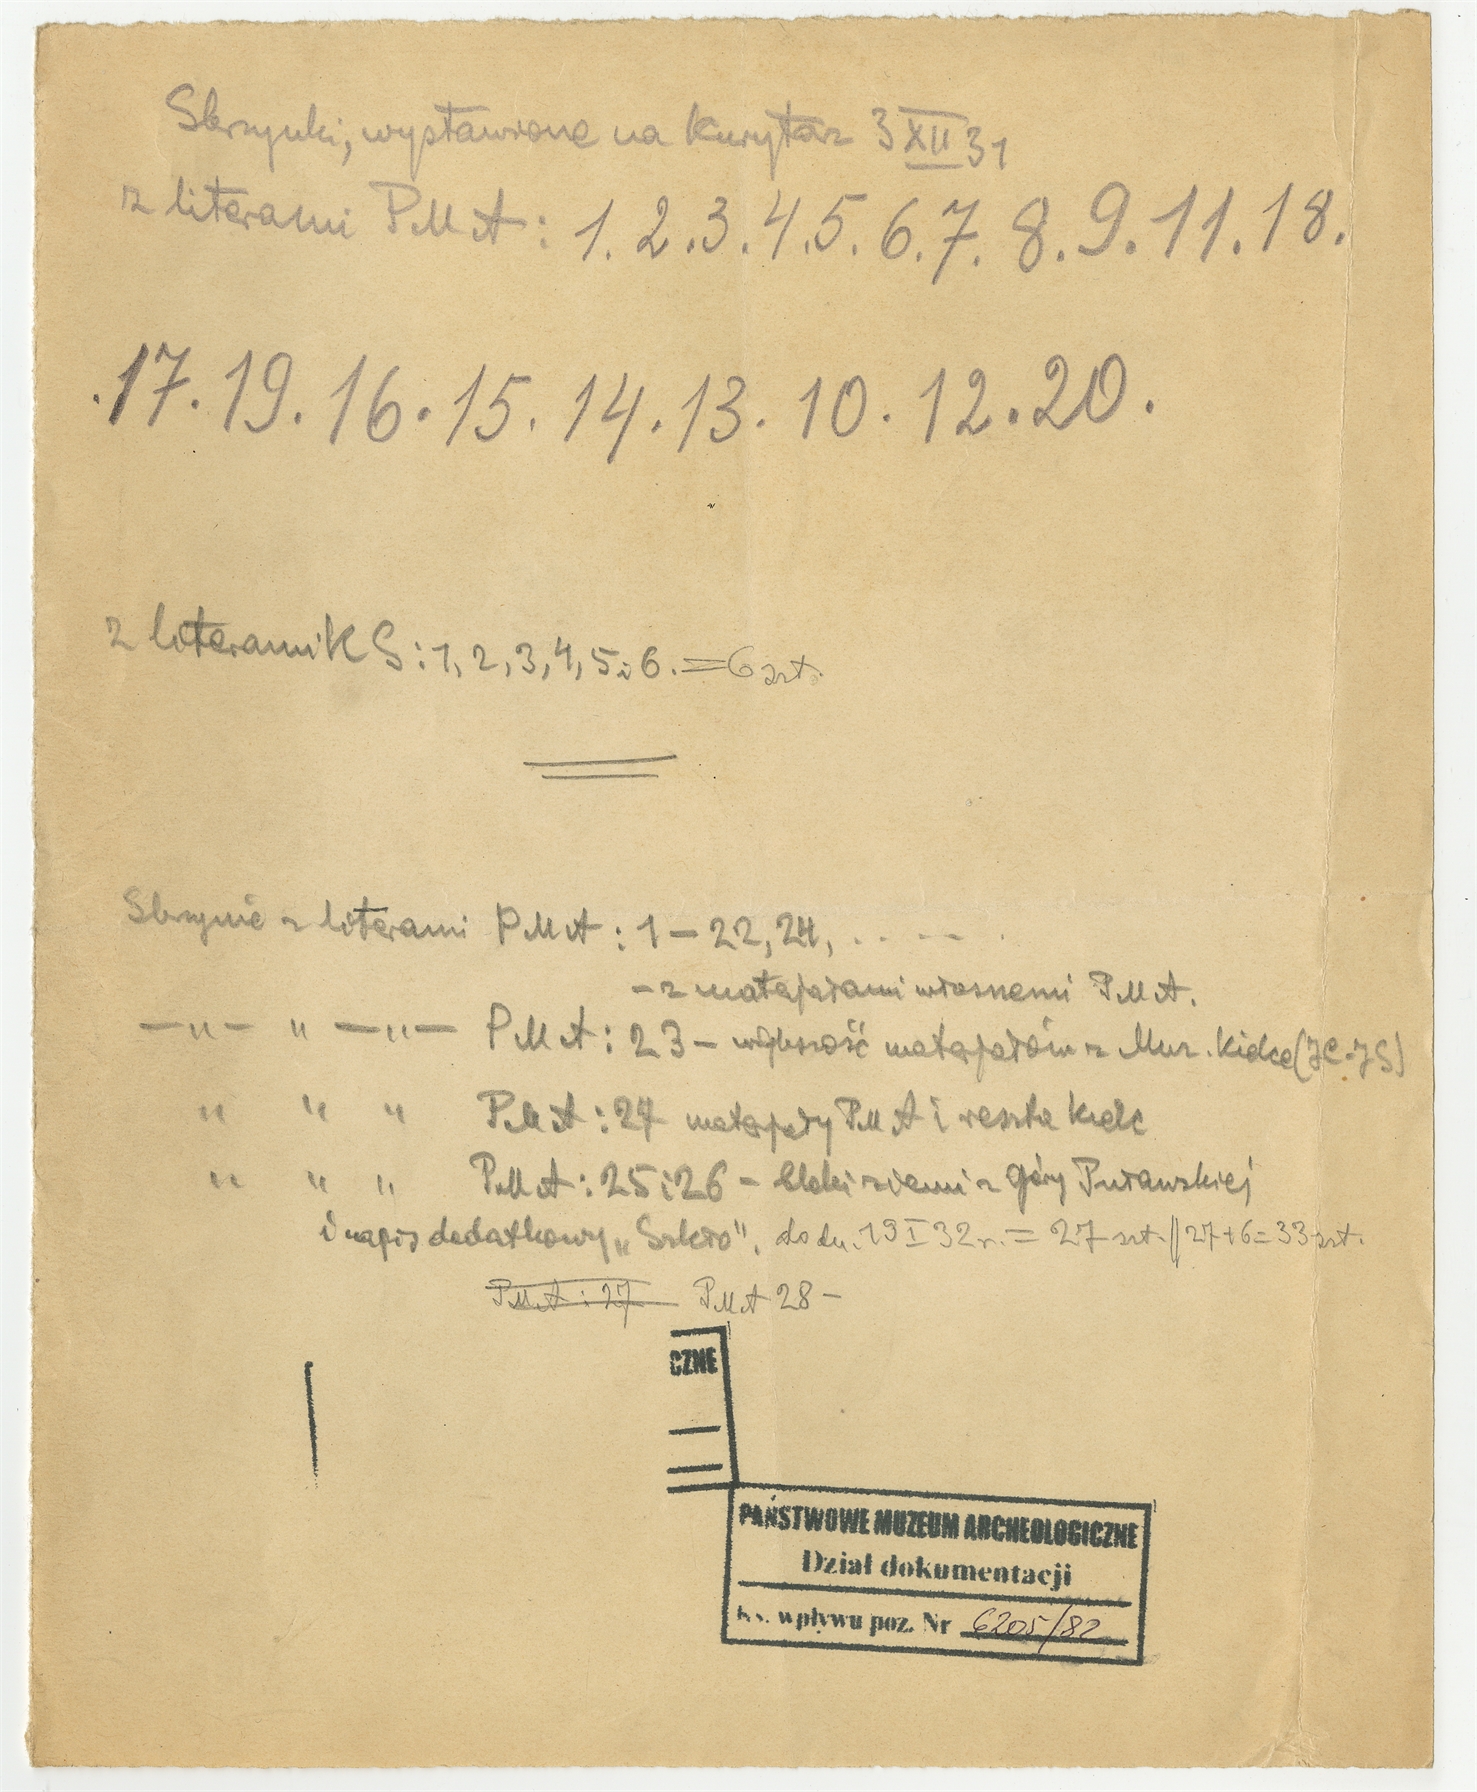 Skrzynki, wystawione na kurytarz 3 XII 31
z literami PMA: 1. 2. 3. 4. 5. 6. 7. 8. 9. 11. 18.
. 17. 19. 16. 15. 14. 13. 10. 12. 20.
z literami KS: 1, 2, 3, 4, 5 i 6. = 6 szt.
Skrzynie z literami PMA: 1 – 22, 24, . . – – .
– z materjałami własnemi PMA.
—„— „ —„— PMA: 23 – większość materjałów z Muz. Kielce
„ „ „ PMA: 27 materjały PMA i reszta Kielc
„ „ „ PMA: 25 i 26 – bloki ziemi z Góry Puławskiej
i napis dodatkowy „Szkło", do dn. 19 I 32 r. = 27 szt. || 27 + 6 = 33 szt.
PMA: 27 PMA 28 –
CZNE
PAŃSTWOWE MUZEUM ARCHEOLOGICZNE
Dział dokumentacji
Ks. wpływu poz. Nr 6205/82